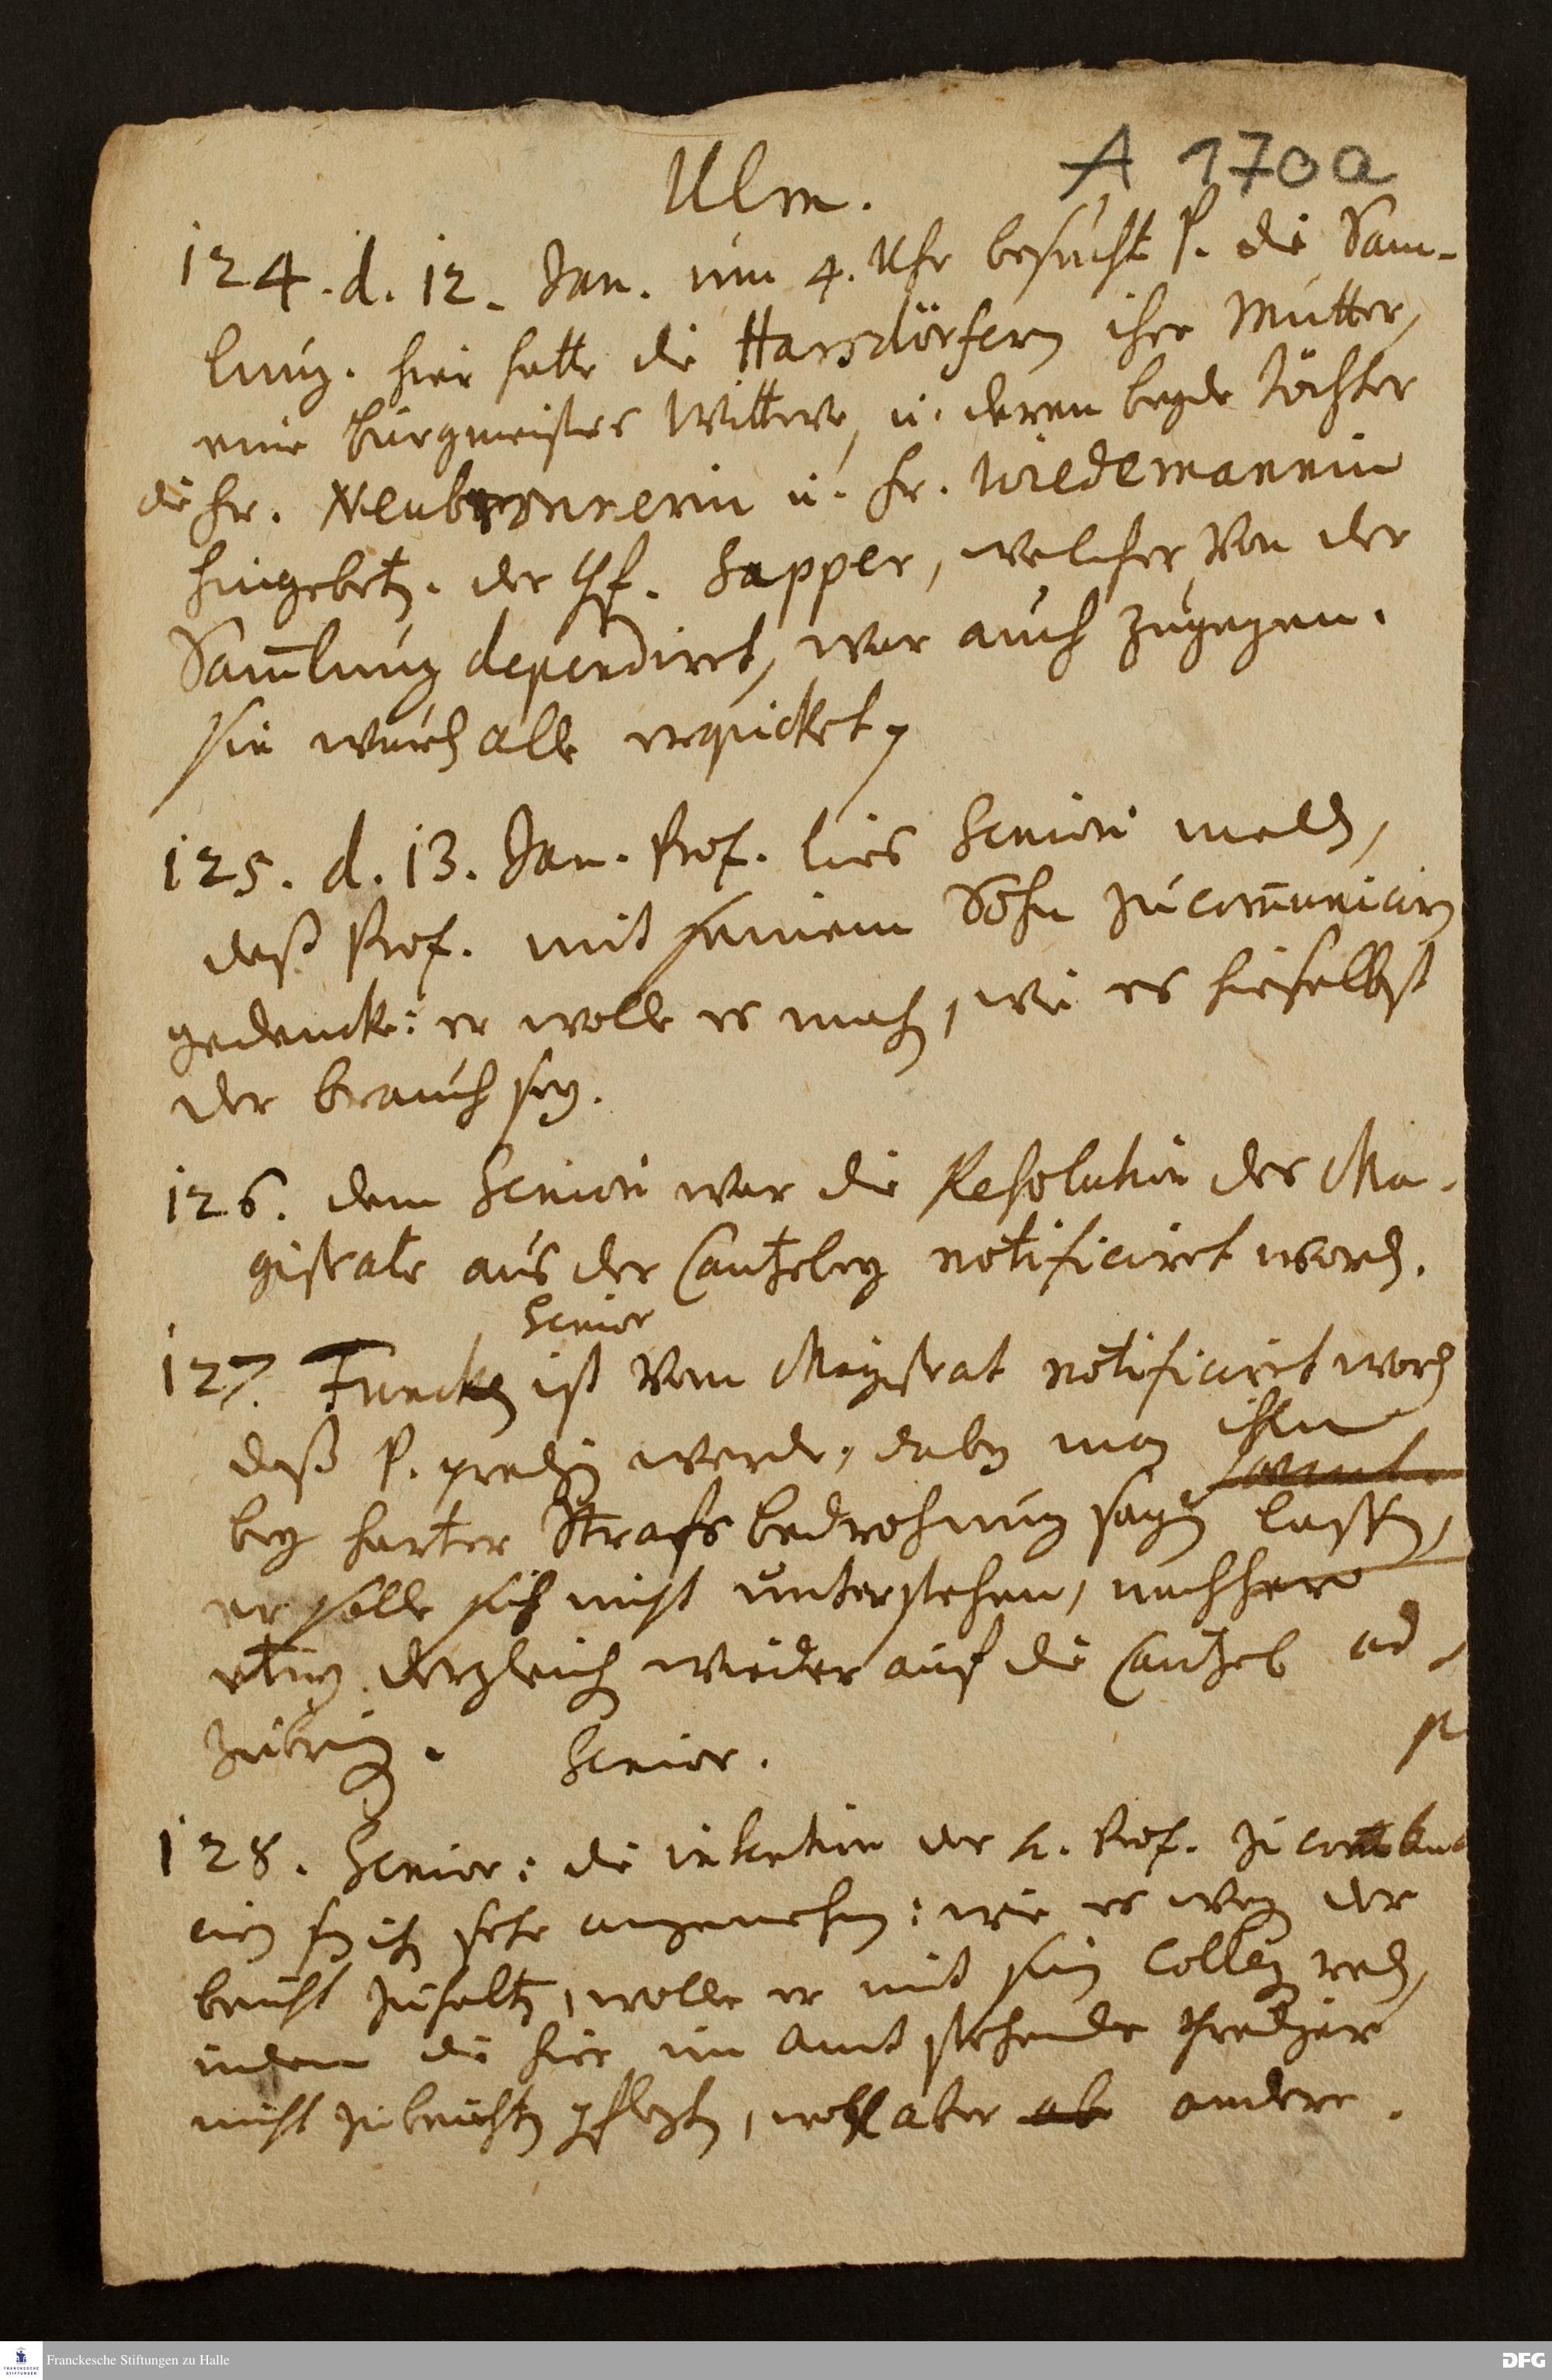 Ulm.
A 170a
124. d. 12. Jan. um 4. Uhr besucht P. die Sam-
lung. hier hatte die Harsdörfern ihre Mutter,
eine Burgmeisters Wittwe, u. deren beyde Töchter
die Fr. Neubronnerin u. Fr. Wiedemannin
hingebeten. der Hf. Sapper, welcher von der
Samlung dependiret, war auch zugegen.
sie wurden alle erquicket.
125. d. 13. Jan. Prof. lies Seniori melden,
daß Prof. mit seinem Sohn zu communiciren
gedencke: er wolle es machen, wie es hieselbst
der brauch sey.
126. dem Seniori war die Resolution des Ma-
gistrats aus der Cantzeley notificiret worden.
Senior
127. Funcken ist vom Magistrat notificiret worden
daß P. predigen werde, dabey man ihm
bey harter Strafe bedrohung sagen lassen,
er solle sich nicht unterstehen, nachhero
etwas dergleichen wieder auf die Cantzel
zubringen. Senior.
128. Senior: die intention des H. Prof. zu
ciren sey ihm sehr angenehm: wie es wegen der
beicht zuhalten, wolle er mit seinen Collegen reden,
indem die hier im Amt stehende Prediger
nicht zu beichten pflegten, wohl aber andere.
Franckesche Stiftungen zu Halle
DFG